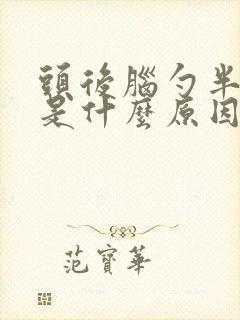 頭後腦勺半
是什麼原因
范寶華